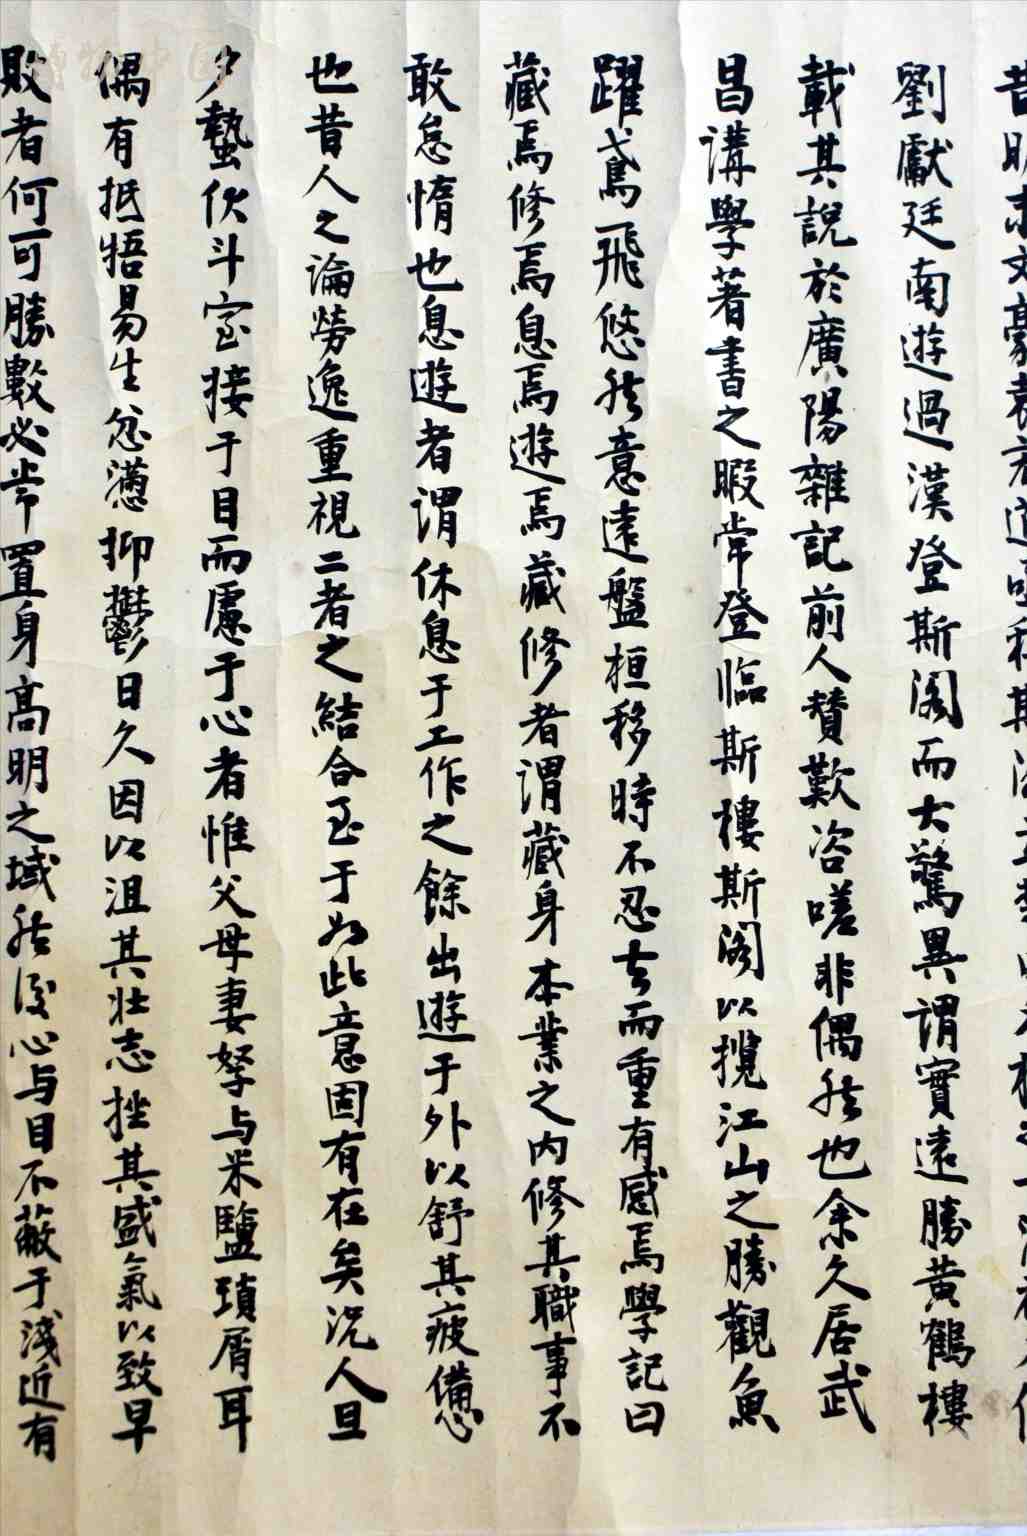 劉獻廷南遊過漢登斯閣而大驚異謂實遠勝黃鶴樓
載其說於廣陽雜記前人贊歎咨嗟非偶然也余久居武
昌講學著書之暇常登臨斯樓斯閣以攬江山之勝觀魚
躍鳶飛悠然意遠盤桓移時不忍去而重有感焉學記曰
藏焉修焉息焉遊焉藏修者謂藏身本業之內修其職事不
敢怠惰也息遊者謂休息于工作之餘出遊于外以舒其疲憊
也昔人之論勞逸重視二者之結合至于如此意固有在矣況人旦
夕蟄伏斗室接于目而慮于心者惟父母妻孥与米鹽瑣屑耳
偶有抵牾易生忿懣抑鬱日久因以沮其壯志挫其盛氣以致早
敗者何可勝數必常置身高明之域然後心与目不蔽于淺近有